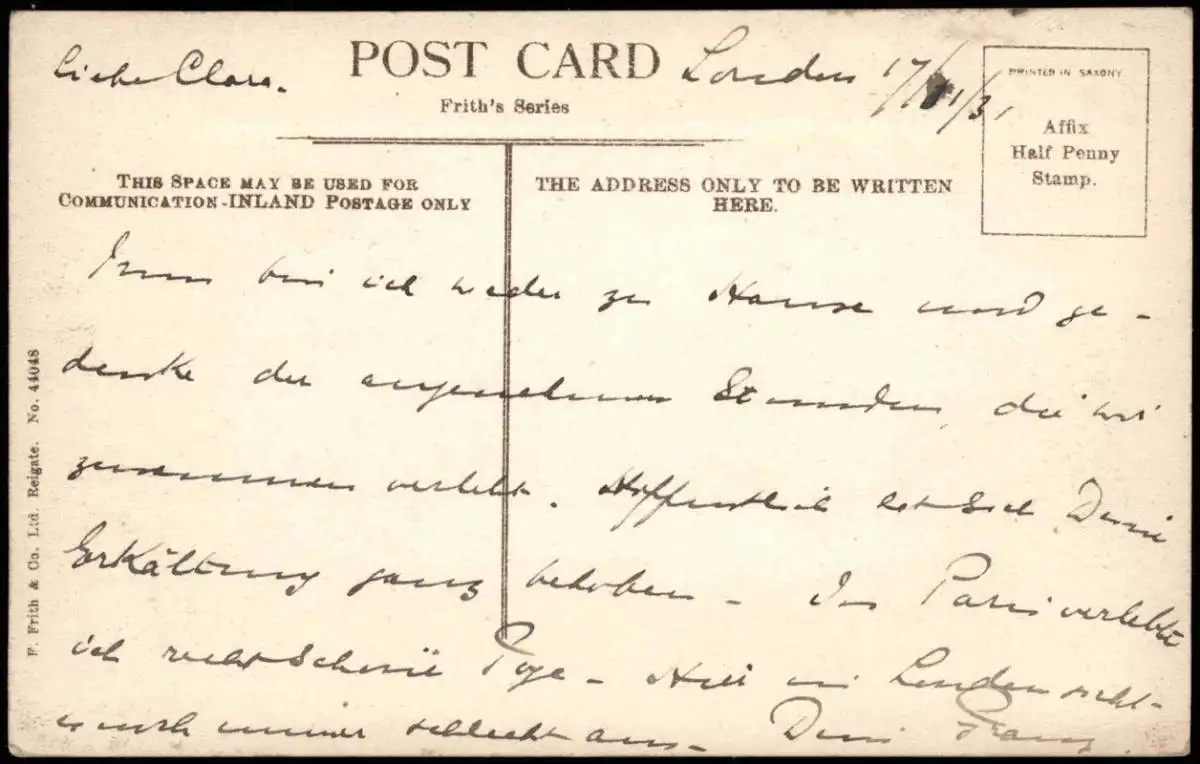 Liebe Clara.
POST CARD
London 17/11/31
Frith's Series
PRINTED IN SAXONY
Affix
Half Penny
Stamp.
THIS SPACE MAY BE USED FOR
COMMUNICATION-INLAND POSTAGE ONLY
THE ADDRESS ONLY TO BE WRITTEN
HERE.
Nun bin ich wieder zu Hause und ge-
denke der angenehmen Stunden, die wir
zusammen verlebt. Hoffentlich hat sich Deine
Erkältung ganz behoben - In Paris verlebte
ich recht schöne Tage - Hier in London sieht
es noch immer schlecht aus - Dein Franz.
F. Frith & Co. Ltd. Reigate. No. 44048